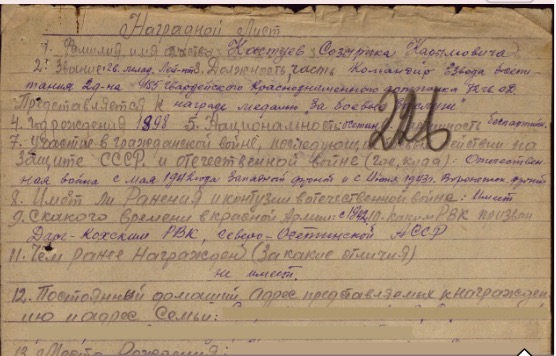 Наградной Лист
1. Фамилия имя отчество: Хостуев Созырко Каурмовича
2. Звание: гв. млад. Лей-т 3. Должность, часть Командир взвода воспи-
тания 29-го гвардейского Краснознаменного
Представляется к награде медалью "За боевые заслуги"
4. Год рождения 1898 5. Национальность: осетин беспартийн.
7. Участие в гражданской войне, последующих действиях на
защите СССР и отечественной войне (где, куда): Отечествен-
ная война с мая 1942 года Западной фронт и с Июня 1943г. Воронежск. фронт
8. Имеет ли Ранения и контузии в отечественной войне: Имеет
9. Скакого времени в красной Армии: с 1942 10. Каким РВК призван
Дарг-Кохским РВК, Северо-Осетинской АССР
11. Чем ранее Награжден (За какие отличия)
не имеет.
12. Постоянный домашний адрес представляемых к награжден
ию и адрес Семьи:
13. Место Рождения:
226